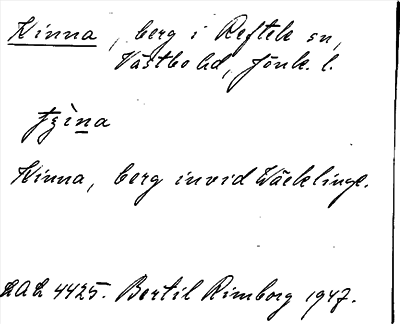 Kinna, berg i Reftele sn,
Västbo hd, Jönk. l.
Kinna, berg invid Wäcklinge.
LAL 4425. Bertil Rimborg 1947.